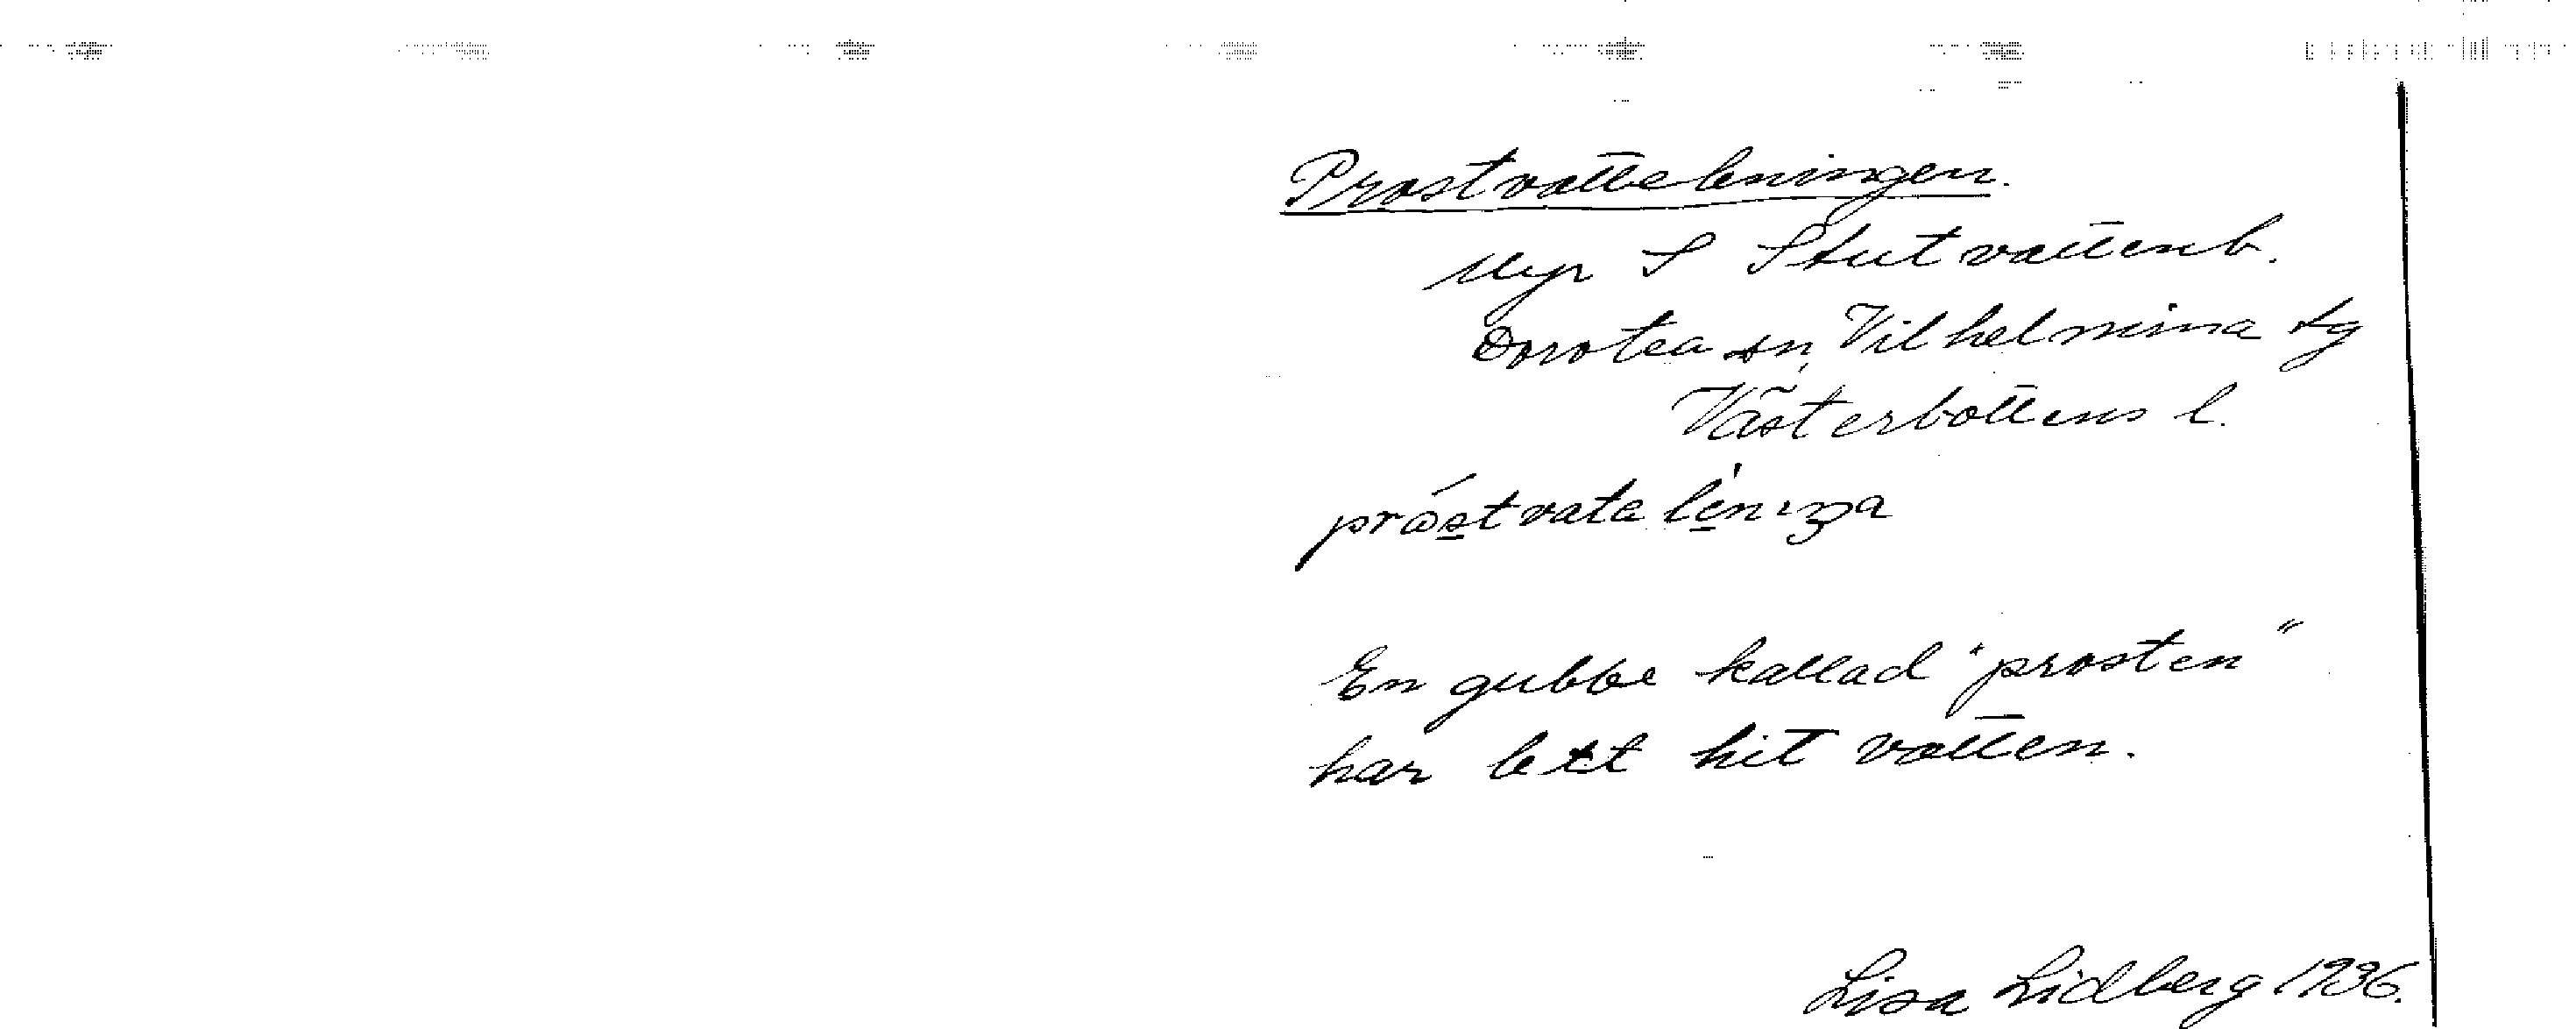 Prostvattleningen.
Myr S Stutvattenb.
Dorotea sn, Vilhelmina tg
Västerbottens l.
prɷ́stvatalèniŋa
En gubbe kallad "prosten"
har lett hit vatten.
Lisa Lidberg 1936.